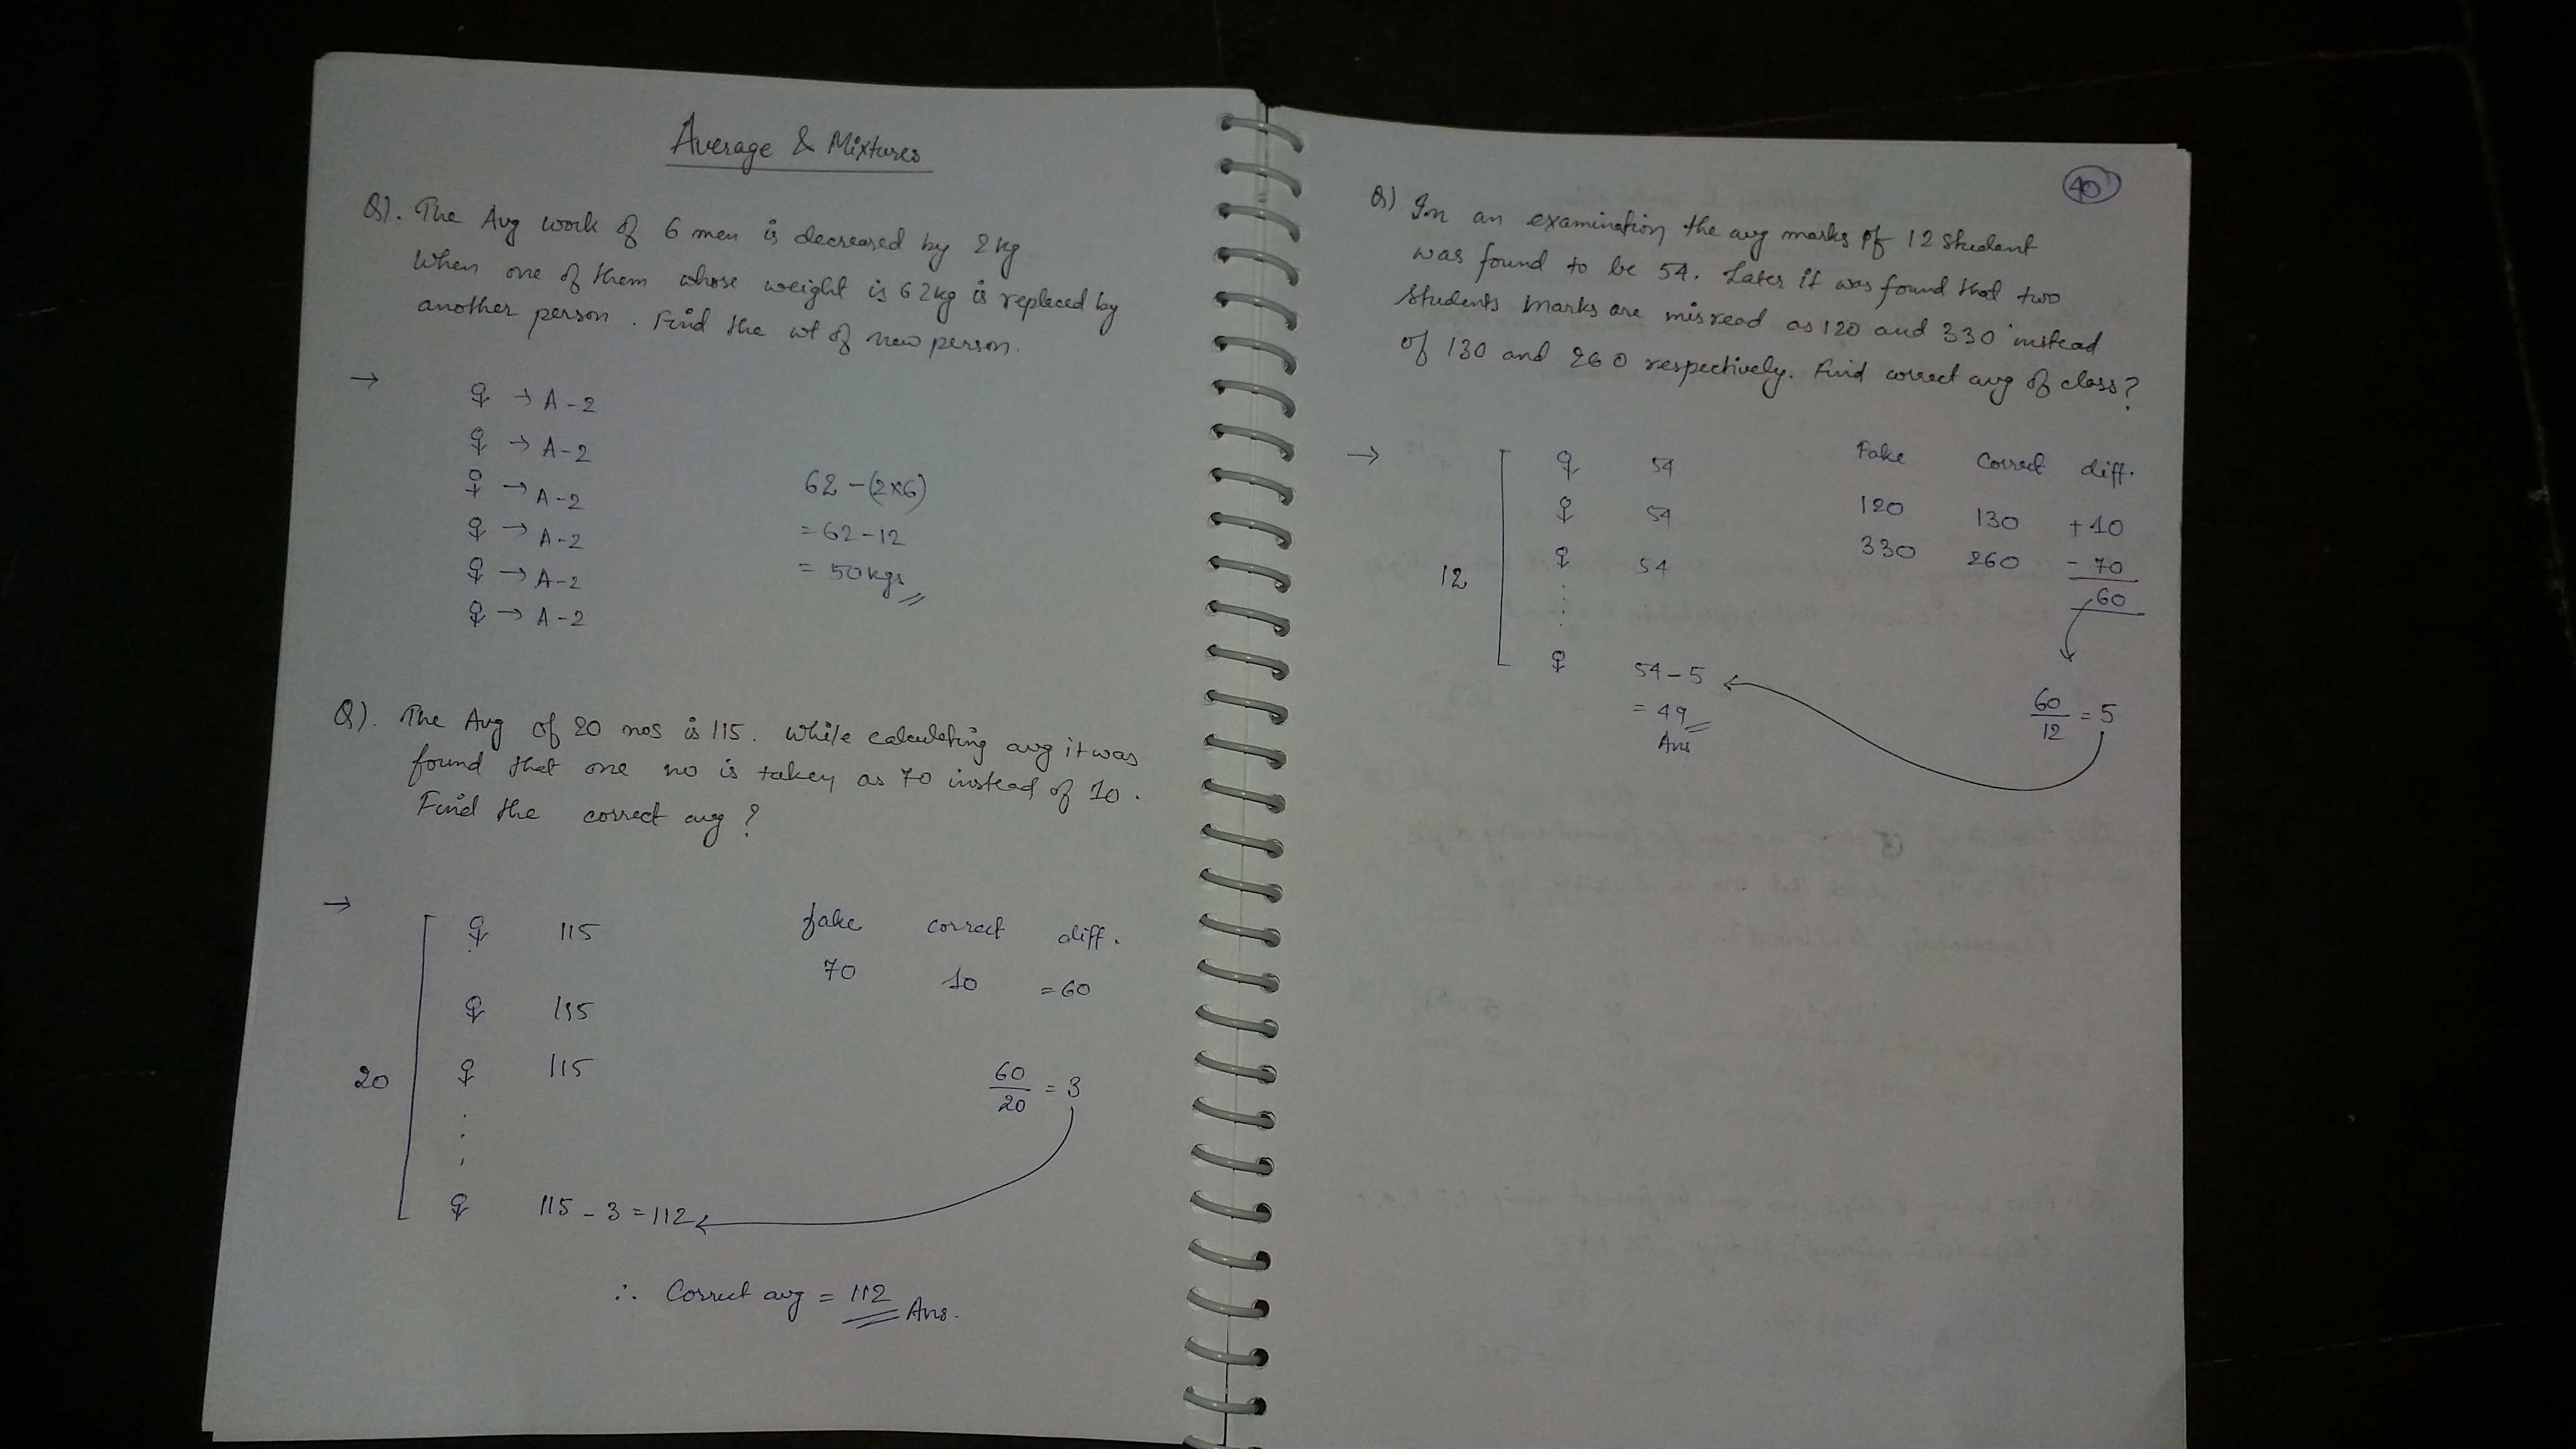 Average & Mixtures
Q). The Avg work of 6 men is decreased by 2kg
When one of them whose weight is 62kg is replaced by
another person. Find the wt of new person.
→
→ A-2
→ A-2
→ A-2
→ A-2
→ A-2
→ A-2
62-(2×6)
= 62-12
= 50kgs
Q). The Avg of 20 nos is 115. While calculating avg it was
found that one no is taken as 70 instead of 10.
Find the correct avg?
→
115
115
115
20
115 - 3 = 112
fake correct diff.
70 10 = 60
60/20 = 3
∴ Correct avg = 112 Ans.
40
Q) In an examination the avg marks of 12 Student
was found to be 54. Later it was found that two
Students marks are misread as 120 and 330 instead
of 130 and 260 respectively. Find correct avg of class?
→
54
54
54
12
54-5
= 49
Ans
Fake Correct diff.
120 130 +10
330 260 -70
60
60/12 = 5